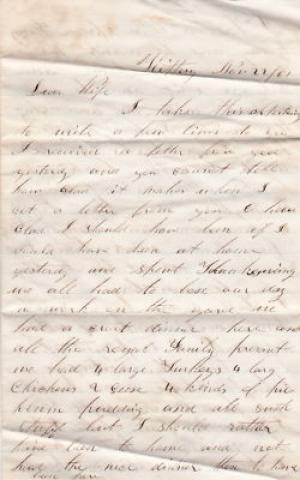 Nov 22/61
Dear Wife
I take this opportunity
to write a few lines to you
I received a letter from you
yesterday and you cannot tell
how glad it makes when I
get a letter from you O how
glad I should have been if I
could have been at home
yesterday and spent Thanksgiving
we all had to lose our day
work on the game we
had a great dinner here and
all the royal Family present
we had 4 large Turkeys 4 larg
Chickens 2 Geese 4 kinds of pie
plum pudding and all such
stuff but I should rather
have been to home and not
had the nice dinner than to have
been here